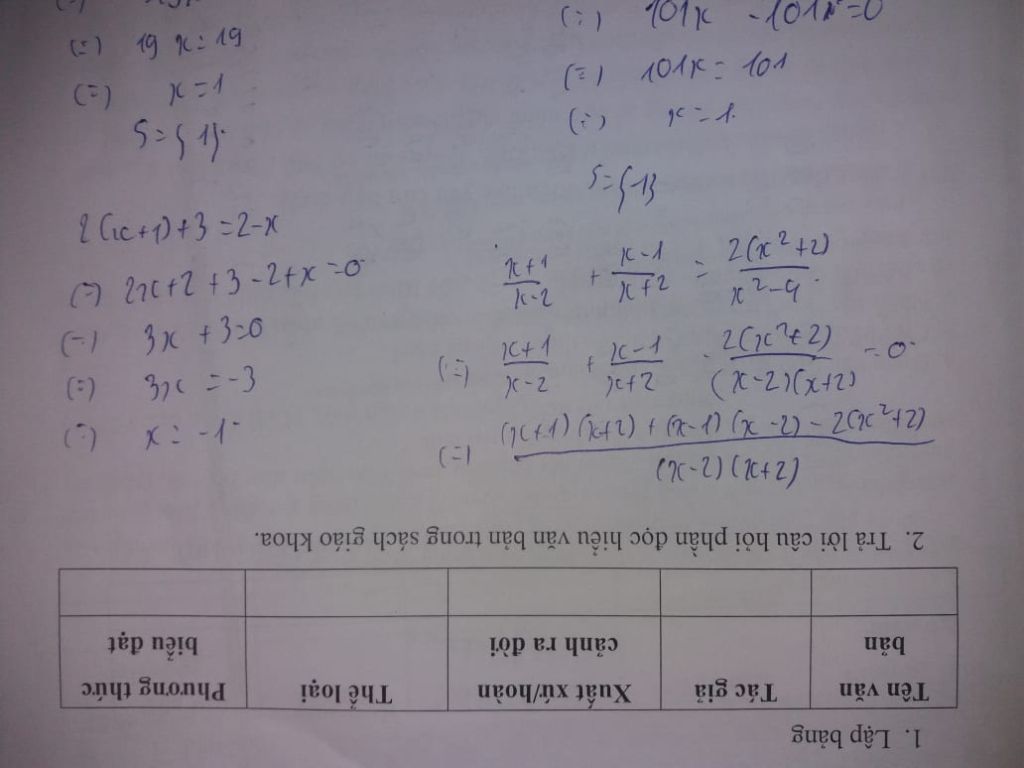 (=) 19x = 19
(=) x = 1
S = { 1 }
2(x+1)+3 = 2-x
(=) 2x+2+3-2+x=0
(=) 3x + 3=0
(=) 3x = -3
(=) x = -1
(=) 101x - 101x=0
(=) 101x = 101
(=) x = 1
S = { 1 }
\frac{x+1}{x-2} + \frac{x-1}{x+2} = \frac{2(x^2+2)}{x^2-4}
(=) \frac{x+1}{x-2} + \frac{x-1}{x+2} - \frac{2(x^2+2)}{(x-2)(x+2)} = 0
(=) \frac{(x+1)(x+2)+(x-1)(x-2)-2(x^2+2)}{(x-2)(x+2)}
1. Lập bảng
Tên văn bản
Tác giả
Xuất xứ/hoàn cảnh ra đời
Thể loại
Phương thức biểu đạt
2. Trả lời câu hỏi phần đọc hiểu văn bản trong sách giáo khoa.